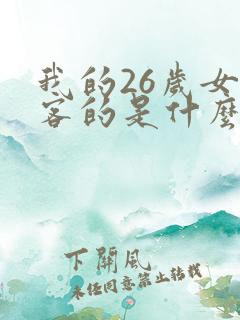 我的26歲女
客的是什麼
下關風
未经同意禁止转载